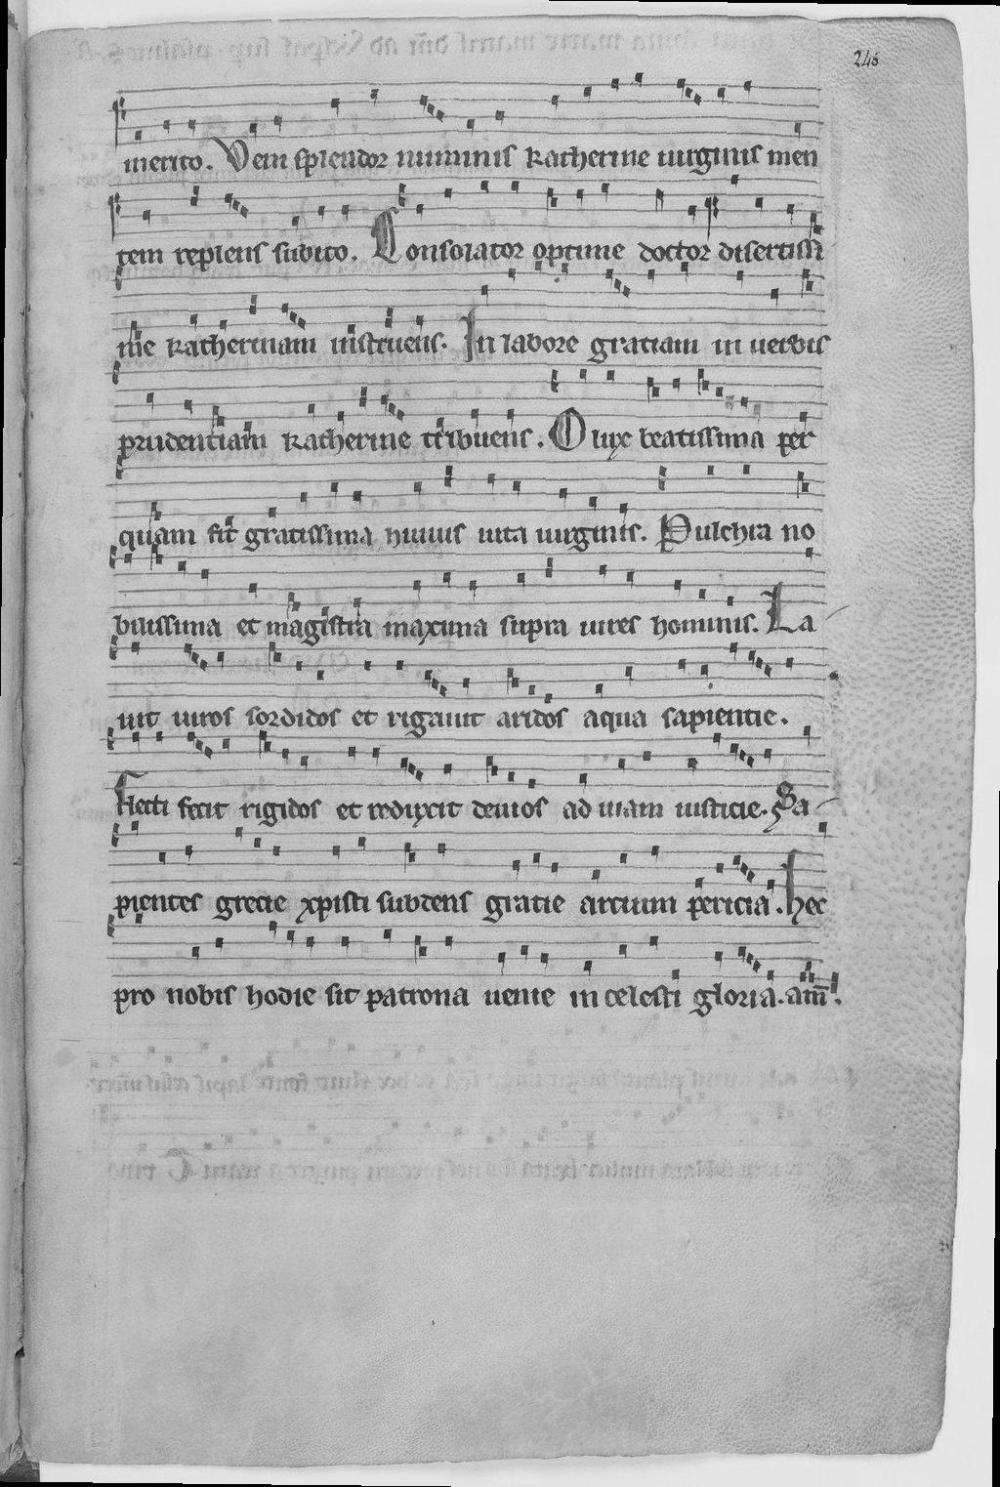 246
merito. Veni splendor numinis katherine uirginis men
tem repiens subito. Consolator optime doctor disertissi
me katherinam instruens. In labore gratiam in uerbis
prudentiam katherine tribuens. O lux beatissima per
quam fit gratissima huius uita uirginis. Pulchra no
bilissima et magistra maxima supra uires hominis. La
uit uiros sordidos et rigauit aridos aqua sapientie.
Flecti fecit rigidos et reduxit deuios ad uiam iusticie. Sa
pientes grecie xpisti subdens gratie artium pericia. Hec
pro nobis hodie sit patrona uenie in celesti gloria. am̅.